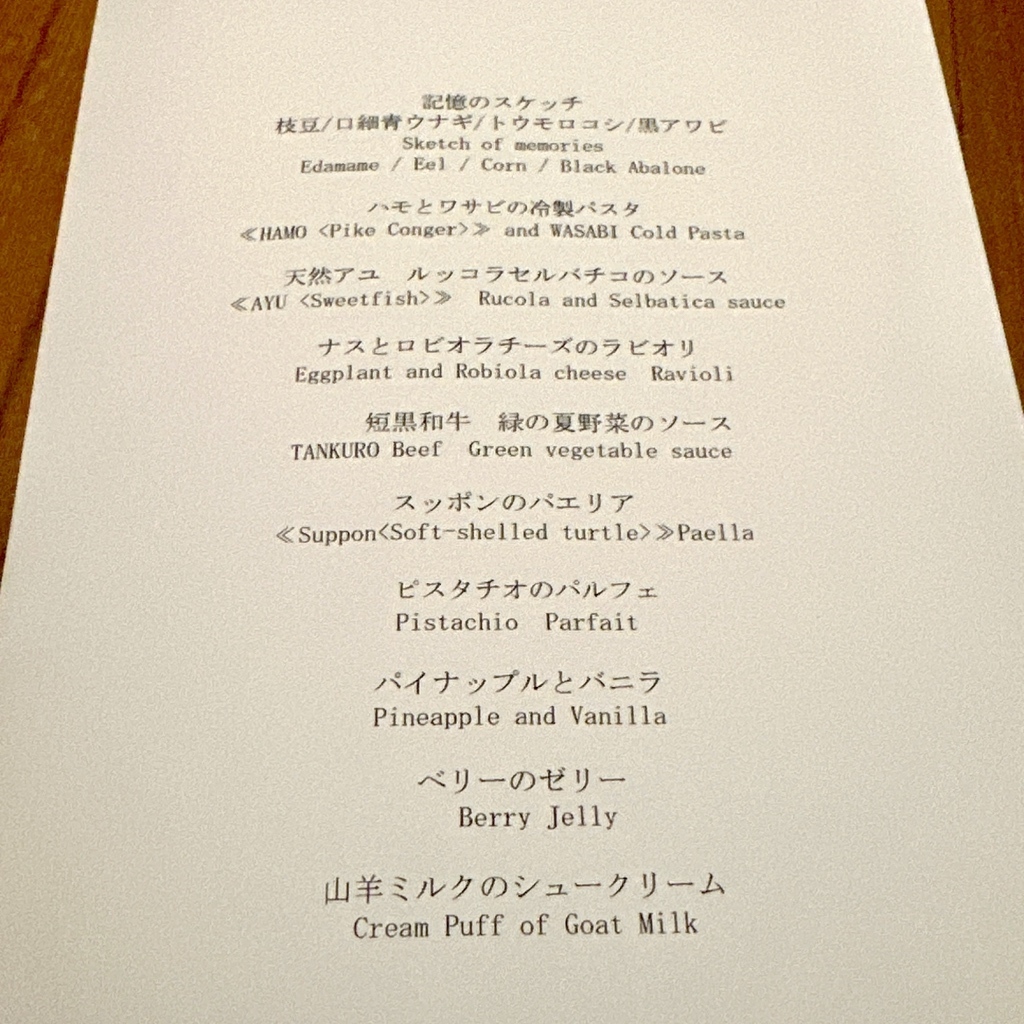 記憶のスケッチ
枝豆/口細青ウナギ/トウモロコシ/黒アワビ
Sketch of memories
Edamame / Eel / Corn / Black Abalone
ハモとワサビの冷製パスタ
≪HAMO <Pike Conger>≫ and WASABI Cold Pasta
天然アユ　ルッコラセルバチコのソース
≪AYU <Sweetfish>≫　Rucola and Selbatica sauce
ナスとロビオラチーズのラビオリ
Eggplant and Robiola cheese　Ravioli
短黒和牛　緑の夏野菜のソース
TANKURO Beef　Green vegetable sauce
スッポンのパエリア
≪Suppon<Soft-shelled turtle>≫Paella
ピスタチオのパルフェ
Pistachio　Parfait
パイナップルとバニラ
Pineapple and Vanilla
ベリーのゼリー
Berry Jelly
山羊ミルクのシュークリーム
Cream Puff of Goat Milk